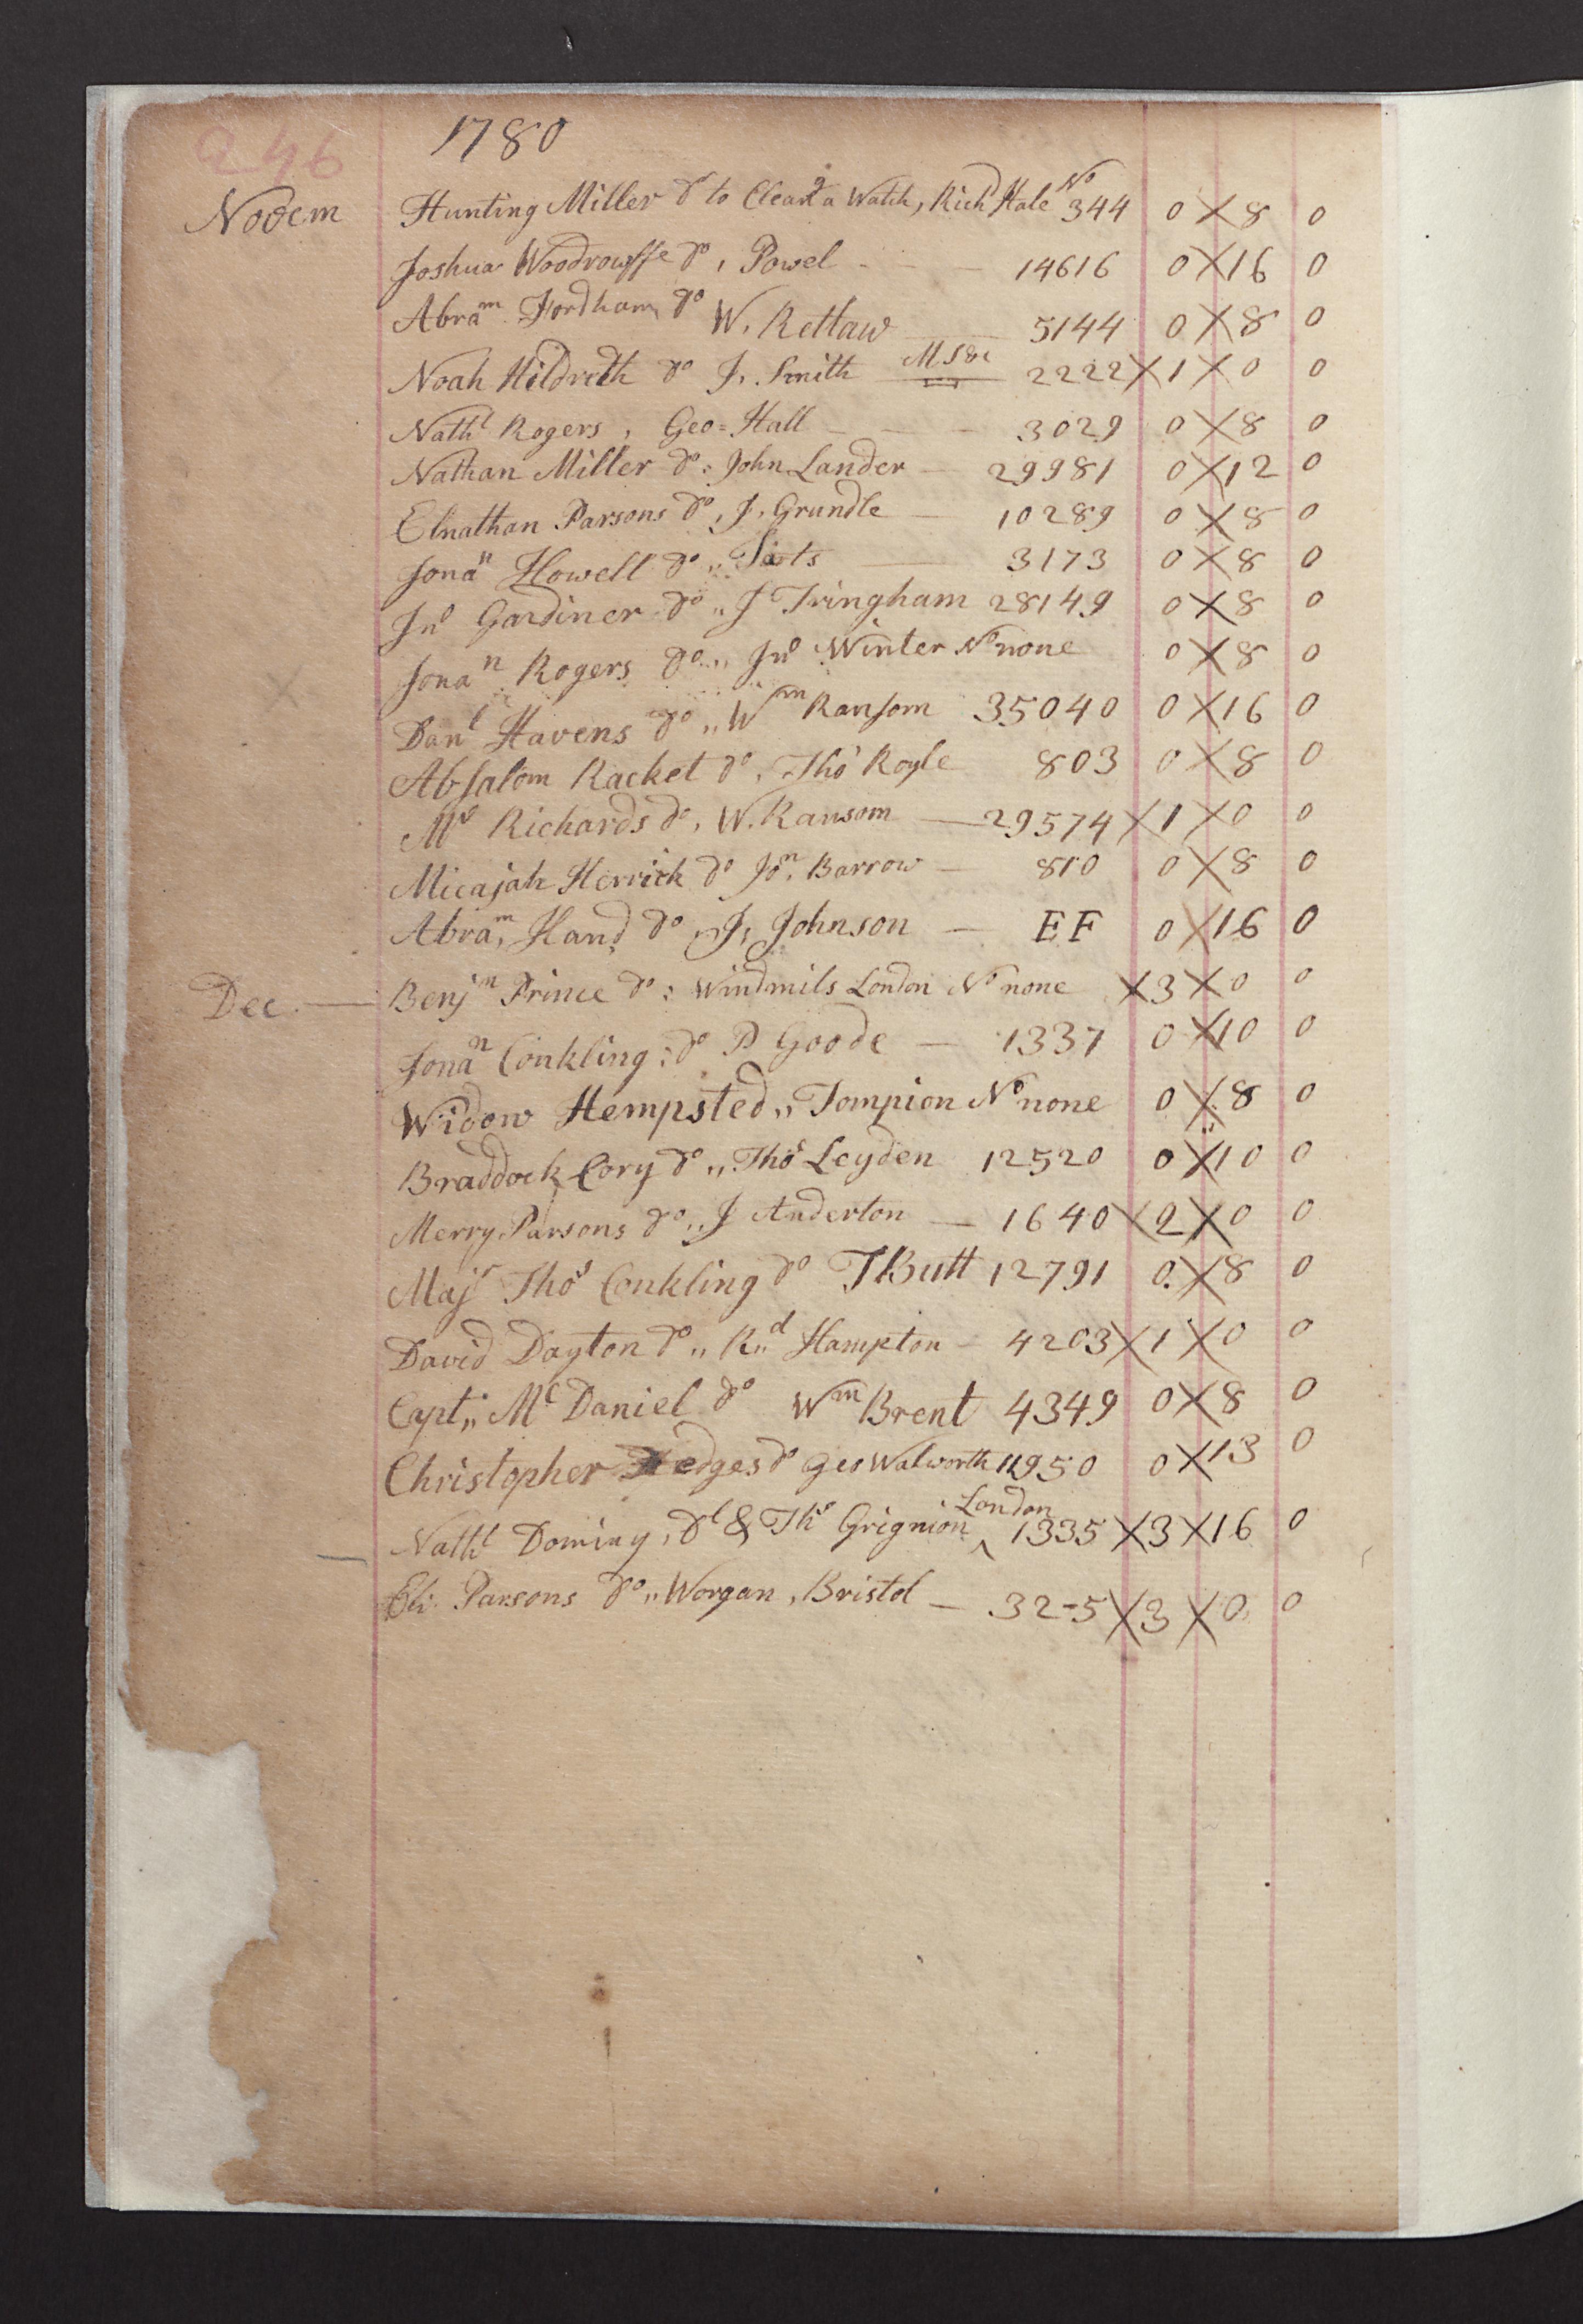 246
1780
Novem Hunting Miller Dr to Cleang a Watch, Richd Hale No 344 0 X 8 0
Joshua Woodrowffe Do, Powel - - - 14616 0 X 16 0
Abram Fordham Do W. Rettaw 5144 0 X 8 0
Noah Hildreth Do J. Smith 2222 X 1 X 0 0
Nathl Rogers, Geo= Hall - - - 3029 0 X 8 0
Nathan Miller Do: John Lander - 29981 0 X 12 0
Elnathan Parsons Do, J. Grundle - 10289 0 X 8 0
Jonan Howell Do „ 3173 0 X 8 0
Jno Gardiner Do „ J Tringham 28149 0 X 8 0
Jonan Rogers Do „ Jno Winter No none 0 X 8 0
Danl Havens Do „ Wm Ransom 35040 0 X 16 0
Absalom Racket Do, Tho Royle 803 0 X 8 0
Mr Richards Do, W. Ransom — 29574 X 1 X 0 0
Micajah Herrick Do Jon. Barrow - 810 0 X 8 0
Abram, Hand Do „ J, Johnson — EF 0 X 16 0
Dec. — Benjmn Prince Do: Windmils London No none X 3 X 0 0
Jonan Conkling: Do P Goode — 1337 0 X 10 0
Widow Hempsted „ Tompion No none 0 X 8 0
Braddock Cory Do „ Thos Leyden 12520 0 X 10 0
Merry Parsons Do „ J Anderton — 1640 X 2 X 0 0
Majr Thos Conkling Do T Butt 12791 0 X 8 0
David Dayton Do „ R„d Hampton - 4203 X 1 X 0 0
Capt„ Mc Daniel Do Wm Brent 4349 0 X 8 0
Christopher Hedges Do Geo Walworth 11950 0 X 13 0
Nathl Dominy, Dl & Ths Grignion ^ London 1335 X 3 X 16 0
Eli Parsons Do „ Worgan, Bristol — 32-5 X 3 X 0 0